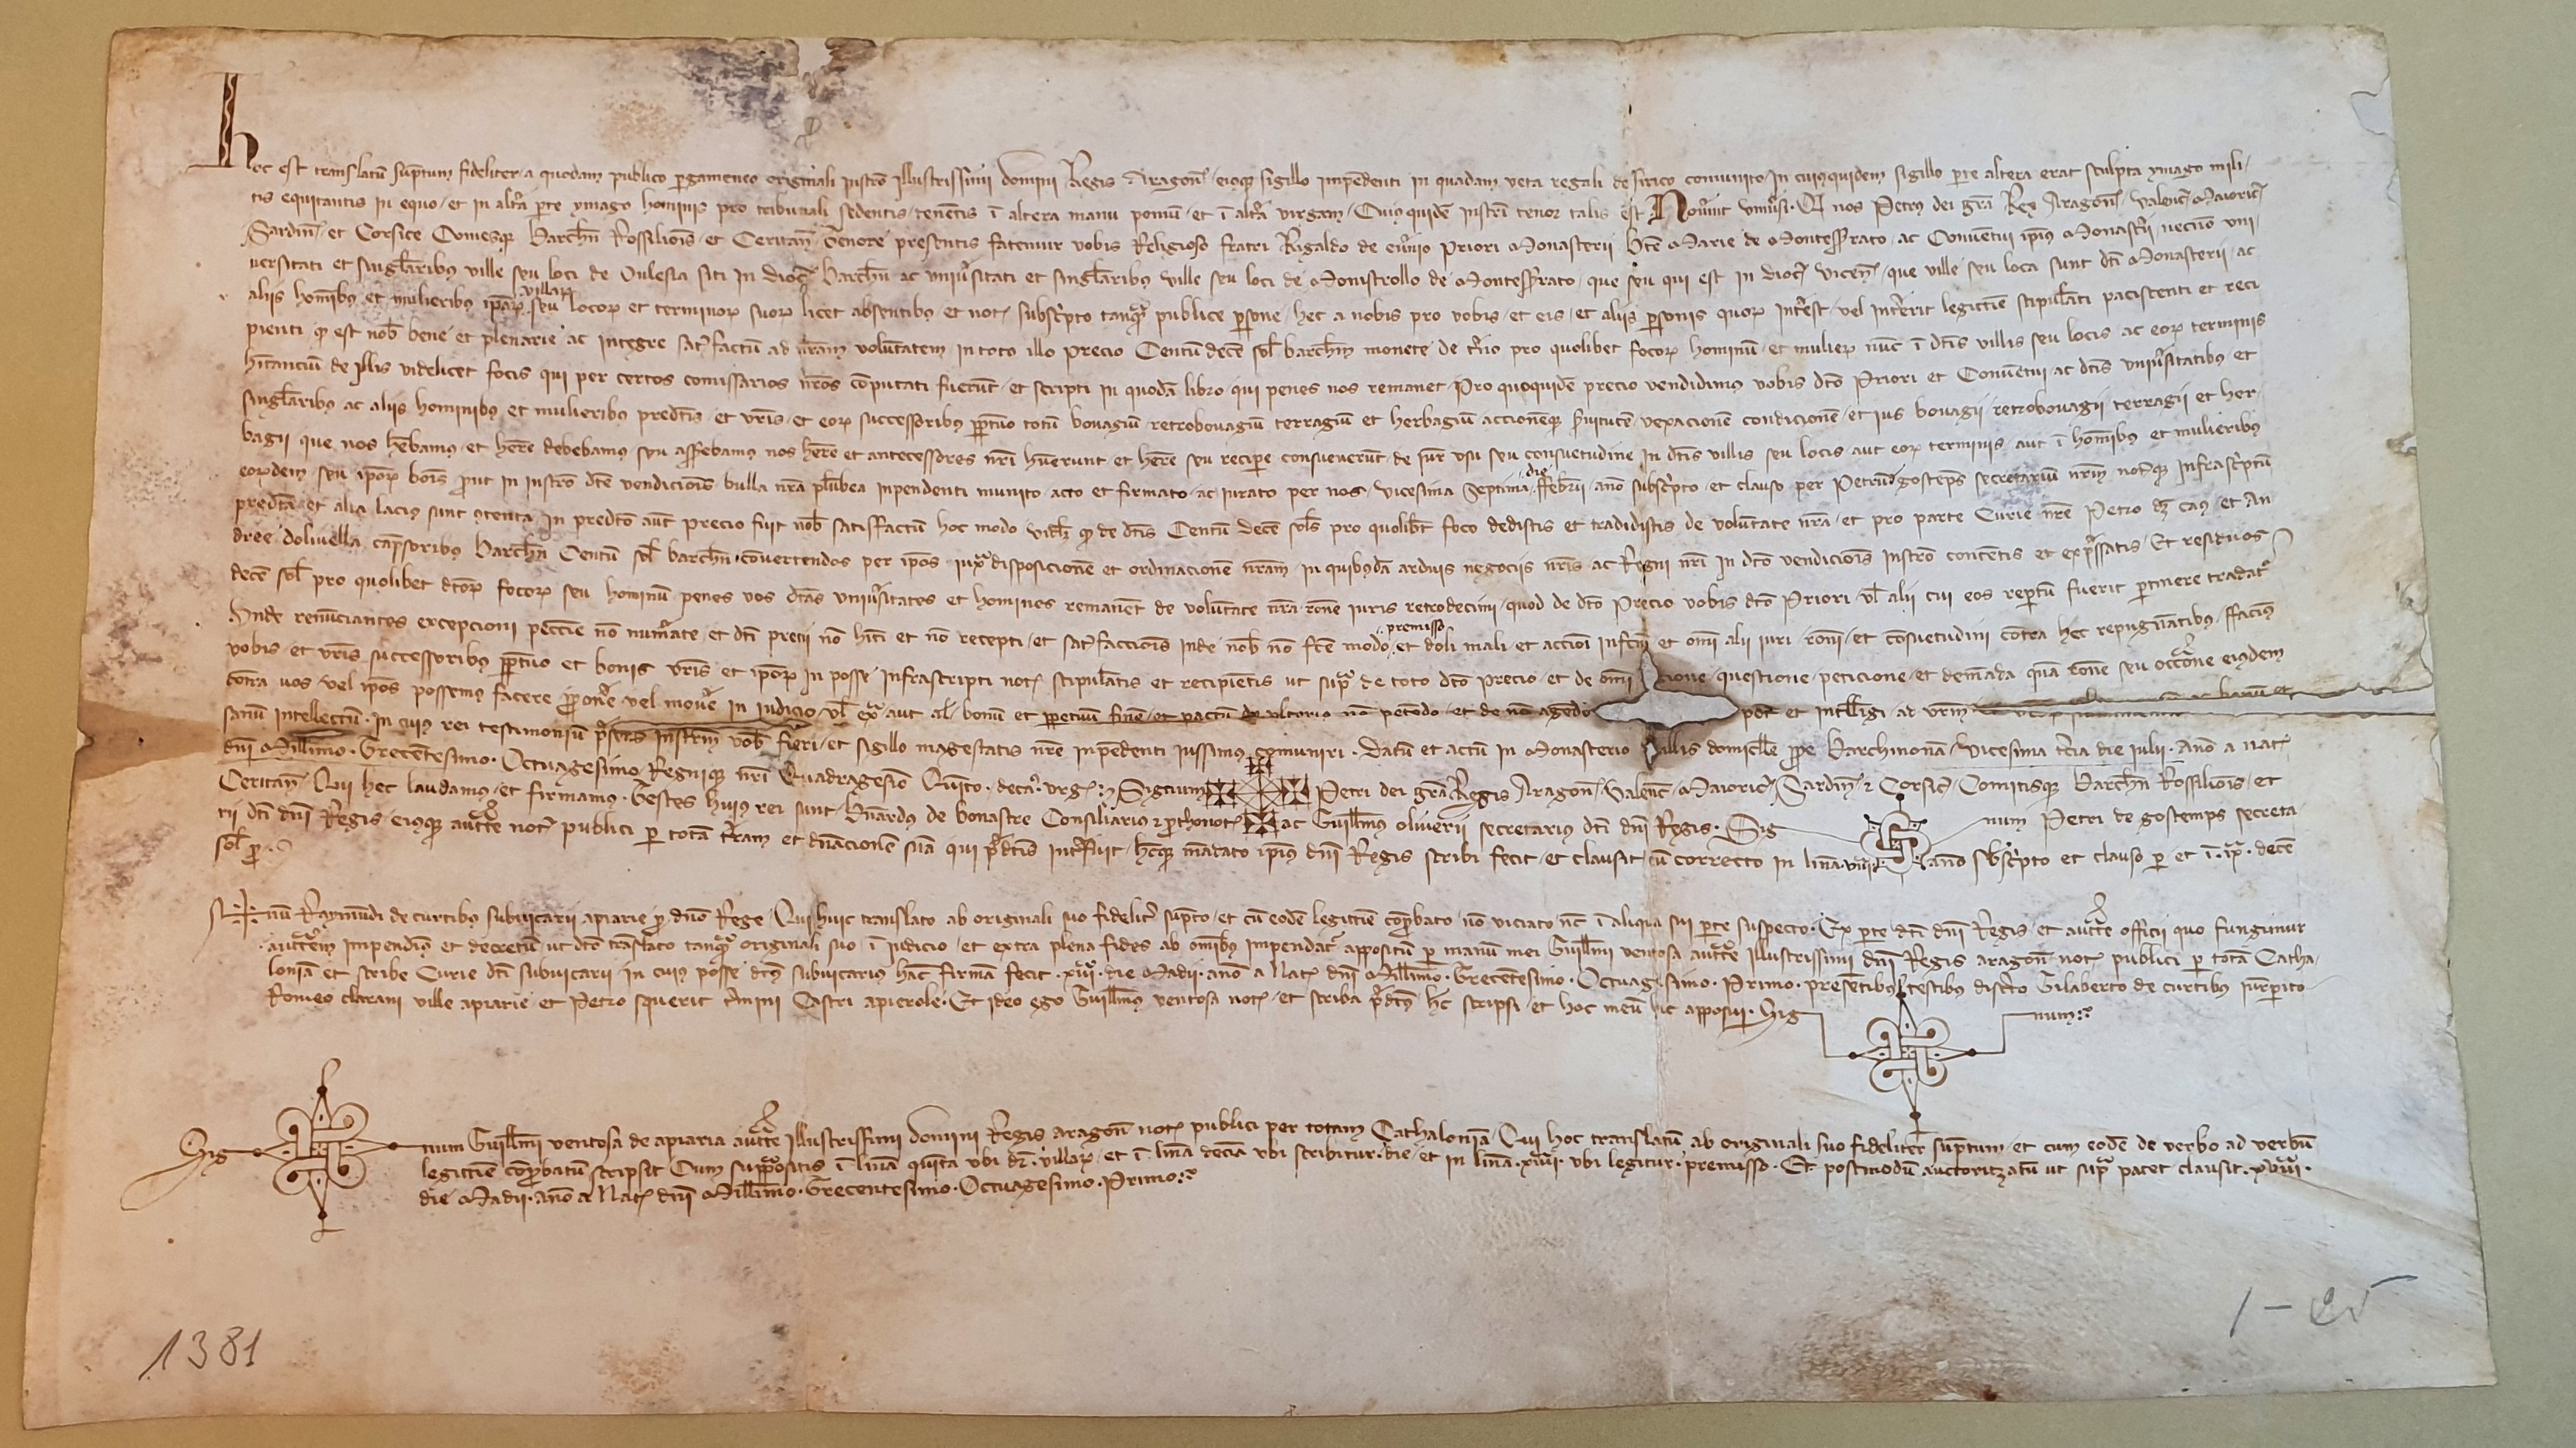 Hoc est translatũ sũptum fideliter a quodam publico pergameneo originali instrõ Illustrissimi domini Regis Aragoñ eiusq sigillo impendenti in quadam veta regali de sirico comunito in cuiusquidem sigillo parte altera erat sculpta ymago mili
tis equitantis in equo et in altã parte ymago hominis pro tribunali sedentis tenentis ĩ altera manu pomũ et ĩ altã virgam Cuiusquidẽ instrĩ tenor talis est Noũint uniũsi Q nos Petrus dei grã Rex Aragoñ Valenc Maioric
Sardiñ et Corsice Comesq Barchñ Rossilionis et Ceritañ Tenore presentis fatemur vobis Religioso fratri Rigaldo de Priori Monasterii bte Marie de Monteserrato ac Conuentui ipius Monastẽrii necnõ uni
uersitati et singlãribus ville seu loci de Oulesia siti in dioc Barchñ ac uniũsitati et singlãribus ville seu loci de Monistrollo de Monteserrato que seu qui est in dioc Viceñ que ville seu loca sunt dti Monasterii ac
aliis homĩbus et mulieribus ipãr villar seu locor et terminor suor licet absentibus et not subscripto tanq publice psone hec a nobis pro vobis et eis et aliis psonis quor intest vel intererit legittime stipulãti paciscenti et reci
pienti q est nob bene et plenarie ac integre satisfactũ ad nrãm volũtatem in toto illo precio Centũ decẽ sol barchñ monete de tno pro quolibet focor hominũ et mulier nũc ĩ dtis villis seu locis ac eor terminis
hitanciũ de illis videlicet focis qui per certos comissarios nros cõputati fuerũt et scripti in quodã libro qui penes nos remanet Pro quoquidẽ precio vendidimus vobis dtõ Priori et Conuẽtui ac dtis uniũsitatibus et
singlãribus ac aliis hominibus et mulieribus predtis et vris et eor successoribus ppetuo totũ bouagiũ retrobouagiũ terragiũ et herbagiũ accionẽq suitutẽ vexacionẽ condicionẽ et ius bouagii retrobouagii terragii et her
bagii que nos hẽbamus et hẽre debebamus seu asserebamus nos hẽre et antecessores nri huerunt et hẽre seu recipe consueuerũt de iur usu seu consuetudine in dtis villis seu locis aut eor terminis aut ĩ homĩbus et mulieribus
eordem seu ipor bonis put in instrõ dte vendicionis bulla nra plũbea inpendenti munito acto et firmato ac iurato per nos vicesima septima die ffebrii ano subscripto et clauso per Petrũ gostemps secretariũ nrm notq infrascriptũ
predtã et alia lacius sunt contenta In predtõ aut precio fuit nob satisfactũ hoc modo vidz q de dtis Centũ decẽ sols pro quolibet foco dedistis et tradidistis de volũtate nrã et pro parte Curie nre Petro dz caus et An
dree doliuella capsoribus Barchñ Centũ sol barchñ conuertendos per ipos iuxta disposicionẽ et ordinacionẽ nram in quibusdã arduis negociis nris ac Regni nri in dtõ vendicionis instrõ contentis et expssatis Et residuos
decẽ sol pro quolibet dtor focor seu hominũ penes vos dtas uniũsitates et homines remanẽt de volũtate nra rone iuris retrodecimi quod de dtõ precio vobis dtõ Priori vl alii cui eos reptũ fuerit ptinere tradat
Unde renũciantes excepcioni peccũie nõ numerate et dti precii nõ hiti et nõ recepti et satisfaccionis inde nob nõ fcẽ modo premisso et doli mali et accioi infcm et omi alii iuri roni et cõsuetudini cõtra hec repugnãtibus ffacim
vobis et vris successoribus ppetuo et bonis vris et ipor in posse infrascripti not stipulãtis et recipiẽtis ut supra de toto dtõ precio et de omi cione questione peticione et demãda quã rone seu occasione eiusdem
contra uos vel ipos possemus facere pponẽ vel mouẽ in iudicio vl ex aut al bonũ et ppetuũ finẽ et pactũ de ulterius nõ petẽdo et de nõ agẽdo pdt et intelligi ad vrm
sanũ intellectũ In cuius rei testimoniũ psens instrm vob fieri et sigillo magestatis nre inpẽdenti iussimus comuniri Datũ et actũ in Monasterio Vallis domicelle ppe Barchinonã vicesima tcia die iulii Ano a nat
dni Millimo Trecẽtesimo Octuagesimo Regniq nri Quadragesio Quĩto Signum Petri dei grã Regis Aragoñ Valenc Maioric Sardiñ et Corsic Comitisq Barchñ Rossilionis et
Ceritañ Qui hec laudamus et firmamus Testes huius rei sunt Bnardus de bonastre Consiliarius et pthonot ac Guillmus oliuerii secretarius dti dni Regis Sig num Petri de gostemps secreta
rii dti dni Regis eiusq auctte not publici p totã tram et dnacionẽ suã qui pdtis intfuit hecq mãdato ipius dni Regis scribi fecit et clausit cũ correcto in lina ano subscripto et clauso p et ĩ decẽ
sol p
Signũ Raymũdi de curtibus subuicarii apiarie p dno Rege Qui huic translato ab originali suo fidelit supto et cũ eodẽ legittie cõpbato nõ viciato nc ĩ aliqua sui parte suspecto Ex parte dti dni Regis et auctte officii quo fungimur
auctẽm impendim et decretũ ut dtõ trãslato tanq originali suo ĩ iudicio et extra plena fides ab omibus impendat appositũ p manũ mei Guillmi ventosa auctte Illustrissimi dni Regis aragoñ not publici p totã Catha
loniã et scribe Curie dti subuicarii in cuius posse dtus subuicarius hac firmã fecit xiiii die Madii ano a nat dni Millimo Trecẽtesimo Octuagesimo Primo presentibus testibus discto Gilaberto de curtibus iurpito
Romeo clarani ville apiarie et Petro squerit tmini Castri apierole Et ideo ego Guillmus ventosa not et scriba pdtus hec scripsi et hoc meũ hic apposui Sig num
Sig num Guillmi ventosa de apiaria auctte Illustrissimi domini Regis aragoñ not publici per totam Cathaloniã Qui hoc translatũ ab originali suo fideliter sũptum et cum eodẽ de verbo ad verbũ
legittie cõpbatũ scripsit Cum suppositis ĩ lina quĩta ubi dr villar et ĩ lina decĩa ubi scribitur die et in lina xiiii ubi legitur premisso Et postmodũ auctorizatũ ut supra patet clausit xviii
die Madii ano a Nat dni Millimo Trecentesimo Octuagesimo Primo
1381